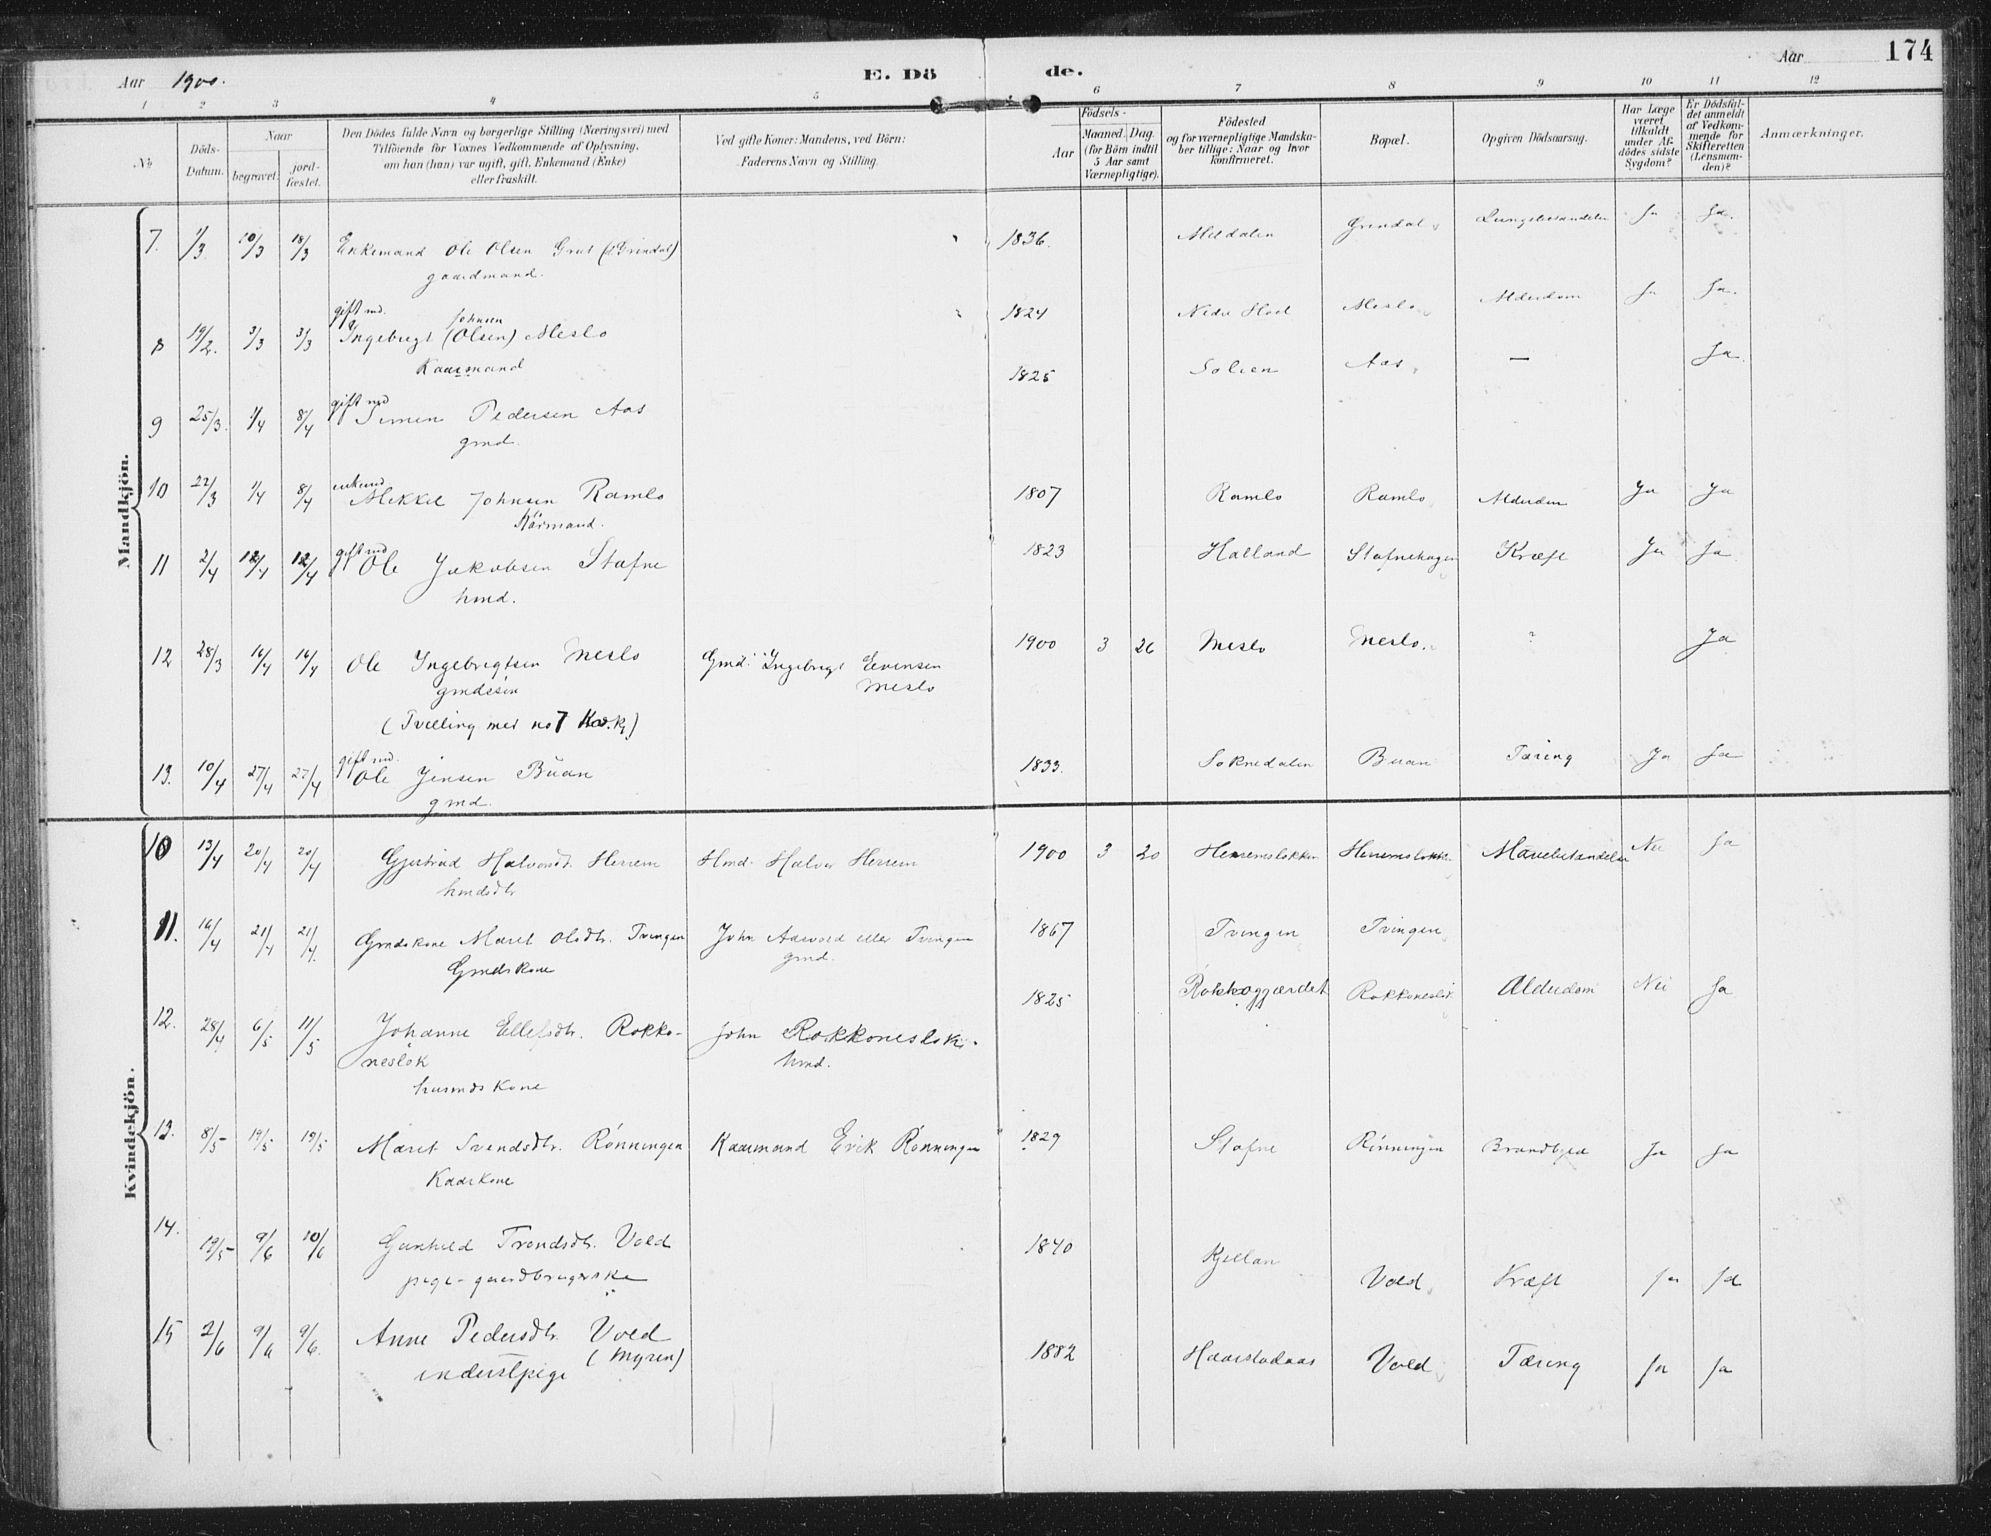 Aar 1900. E. Dö de. Aar 174
1 2 3 4 5 6 7 8 9 10 11 12
No. Döds-Datum. Naar begravet. jordfæstet. Den Dödes fulde Navn og borgerlige Stilling (Næringsvei) med Tilföiende for Voxnes Vedkommende af Oplysning, om han (hun) var ugift, gift, Enkemand (Enke) eller fraskilt. Ved gifte Koner: Mandens, ved Börn: Faderens Navn og Stilling. Födsels- Aar Maaned. Dag. (for Börn indtil 5 Aar samt Værnepligtige). Födested og for værnepligtige Mandskaber tillige: Naar og hvor konfirmeret. Bopæl. Opgiven Dödsaarsag. Har Læge været tilkaldt under Afdödes sidste Sygdom? Er Dödsfaldet anmeldt af Vedkommende for Skifteretten (Lensmanden)? Anmærkninger.
Mandkjön.
7. 1/3. 10/3 18/3 Enkemand Ole Olsen Grut (f. Grindal) 1836. Meldalen Grindal Lungebetændelse Ja Ja.
gaardmand.
gift md. Johnsen
8 19/2. 3/3 3/3 Ingebrigt (Olsen) Meslo 1824 Nedre Hoel Meslo Alderdom Ja Ja.
Kaarmand
gift md
9 25/3. 1/4 8/4 Simen Pedersen Aas 1825 Solien Aas — Ja.
gmd.
enkemd
10 22/3 1/4 8/4 Mikkel Johnsen Ramlo 1807 Ramlo Ramlo Alderdom Ja Ja
Kårmand.
gift md
11 2/4 12/4 12/4 Ole Jakobsen Stafne 1823 Halland Stafnehagen Kræft Ja Ja
hmd.
12 28/3 16/4 16/4 Ole Ingebrigtsen Meslo Gmd. Ingebrigt Evensen 1900 3 26 Meslo Meslo. ? Ja
gmdssön Meslo
(Tvilling med no 7 Kv.k)
gift md.
13. 10/4 27/4 27/4 Ole Jensen Buan 1833. Soknedalen Buan Tæring Ja Ja
gmd.
Kvindekjön.
10 13/4 20/4 20/4 Gjertrud Halvorsdtr. Herrem Hmd. Halvor Herrem 1900 3 20 Herremsløkken Herremsløkk. Mavebetændelse Nei Ja
hmdsdtr
11. 16/4 21/4 21/4. Gmdskone Maret Olsdtr. Tvingen John Aasvold eller Tvingen 1867 Tvingen Tvingen
Gmdskone gmd.
12. 28/4 6/5 11/5 Johanne Ellefsdtr. Rokko- John Rokkoneslök. 1825 Rokkogjærdet Rokkoneslök Alderdom Nei Ja
neslök hmd.
husmdskone
13. 8/5- 19/5 19/5 Maret Svendsdtr. Rønningen Kaarmand Erik Rønningen 1829 Stafne Rønningen Brandbyld Ja Ja
Kaarkone
14. 19/5- 9/6 10/6 Gunhild Trondsdtr. Vold 1840 Kjellan Vold Kræft Ja Ja
pige-gaardbrugerske
15 2/6 9/6 9/6. Anne Pedersdtr. Vold 1882 Haarstadaas Vold Tæring Ja Ja
(Myren)
inderstpige